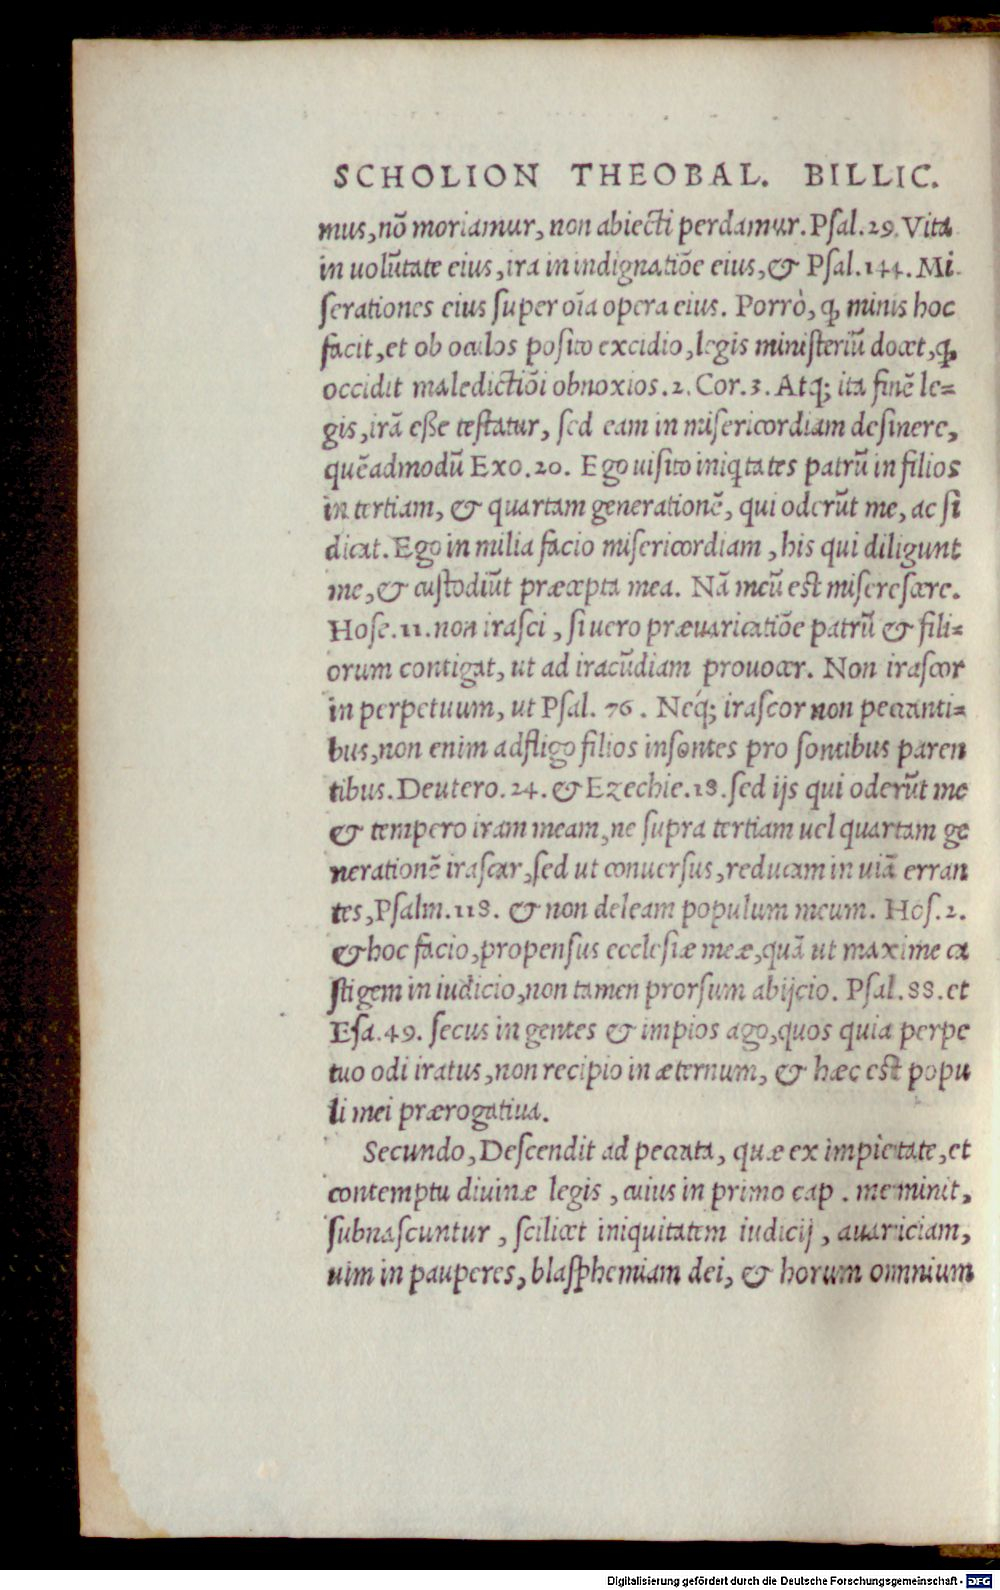 SCHOLION THEOBAL. BILLIC.
mus, nõ moriamur, non abiecti perdamur. Psal. 29. Vita
in uolũtate eius, ira in indignatiõe eius, & Psal. 144. Mi-
serationes eius super oĩa opera eius. Porrò, ꝙ minis hoc
facit, et ob oculos posito excidio, legis ministeriũ docet, ꝙ
occidit maledictiõi obnoxios. 2. Cor. 3. Atq; ita finẽ le=
gis, irã eße testatur, sed eam in misericordiam desinere,
quẽadmodũ Exo. 20. Ego uisito iniq̃tates patrũ in filios
in tertiam, & quartam generationẽ, qui oderũt me, ac si
dicat. Ego in milia facio misericordiam, his qui diligunt
me, & custodiũt præcepta mea. Nã meũ est miserescere.
Hose. 11. non irasci, si uero præuaricatiõe patrũ & fili=
orum contigat, ut ad iracũdiam prouocer. Non irascor
in perpetuum, ut Psal. 76. Neq́; irascor non peccanti=
bus, non enim adfligo filios insontes pro sontibus paren
tibus. Deutero. 24. & Ezechie. 18. sed ijs qui oderũt me
& tempero iram meam, ne supra tertiam uel quartam ge
nerationẽ irascar, sed ut conuersus, reducam in uiã erran
tes, Psalm. 118. & non deleam populum meum. Hos. 2.
& hoc facio, propensus ecclesiæ meæ, quã ut maxime ca
stigem in iudicio, non tamen prorsum abijcio. Psal. 88. et
Esa. 49. secus in gentes & impios ago, quos quia perpe
tuo odi iratus, non recipio in æternum, & hæc est popu
li mei prærogatiua.
Secundo, Descendit ad peccata, quæ ex impietate, et
contemptu diuinæ legis, cuius in primo cap. meminit,
subnascuntur, scilicet iniquitatem iudicij, auariciam,
uim in pauperes, blasphemiam dei, & horum omnium
Digitalisierung gefördert durch die Deutsche Forschungsgemeinschaft - DFG